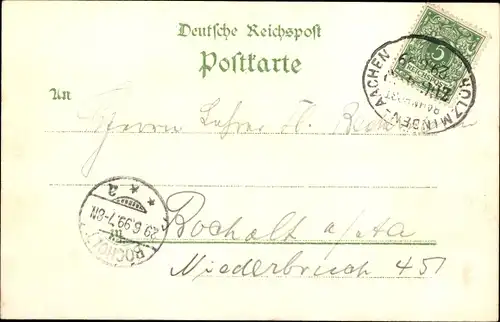 Deutsche Reichspost
Postkarte
5
REICHSPOST
HOLZMINDEN-AACHEN
BAHNPOST
An
Herrn Lehrer H.
29.6.99.7-8N.
BOCHOLT
Bocholt a/Aa
Niederbruch 45